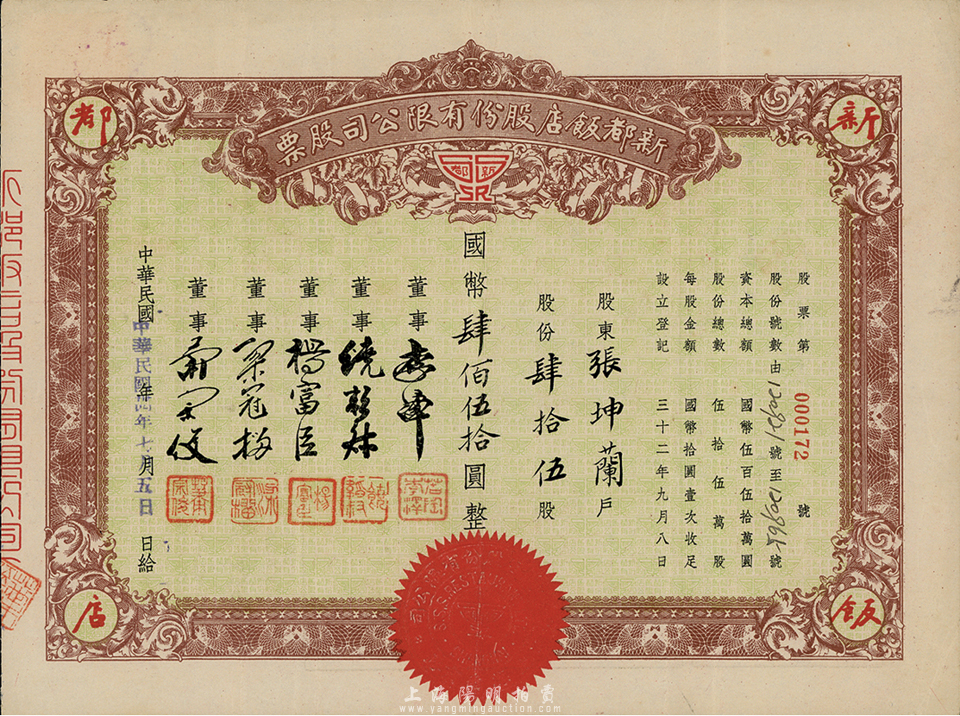 新都飯店股份有限公司股票
新
都
飯
店
新都
股票第 000172 號
股份號數由 號至 號
資本總額 國幣伍百伍拾萬圓
股份總數 伍拾伍萬股
每股金額 國幣拾圓壹次收足
設立登記 三十二年九月八日
股東 張坤蘭 戶
股份 肆拾伍 股
國幣 肆佰伍拾 圓整
董事
董事
董事 楊富臣
董事 梁冠榴
董事
中華民國 年 月 日給
上海陽明拍賣
www.yangmingauction.com